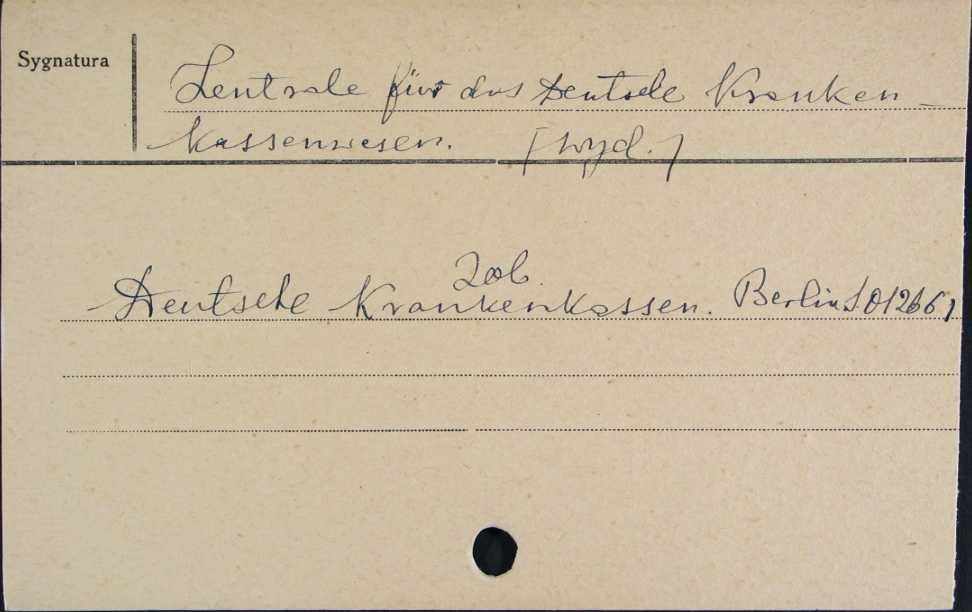 Sygnatura
Zentrale für das Deutsche Kranken-
kassenwesen. [wyd.]
zob.
Deutsche Krankenkassen. Berlin SO 1266)